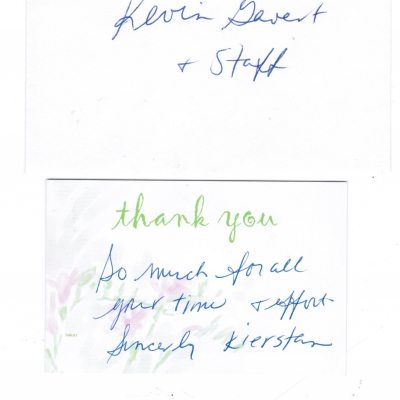 Kevin Gavert
+ Staff
thank you
So much for all
your time + effort
Sincerly Kierstan